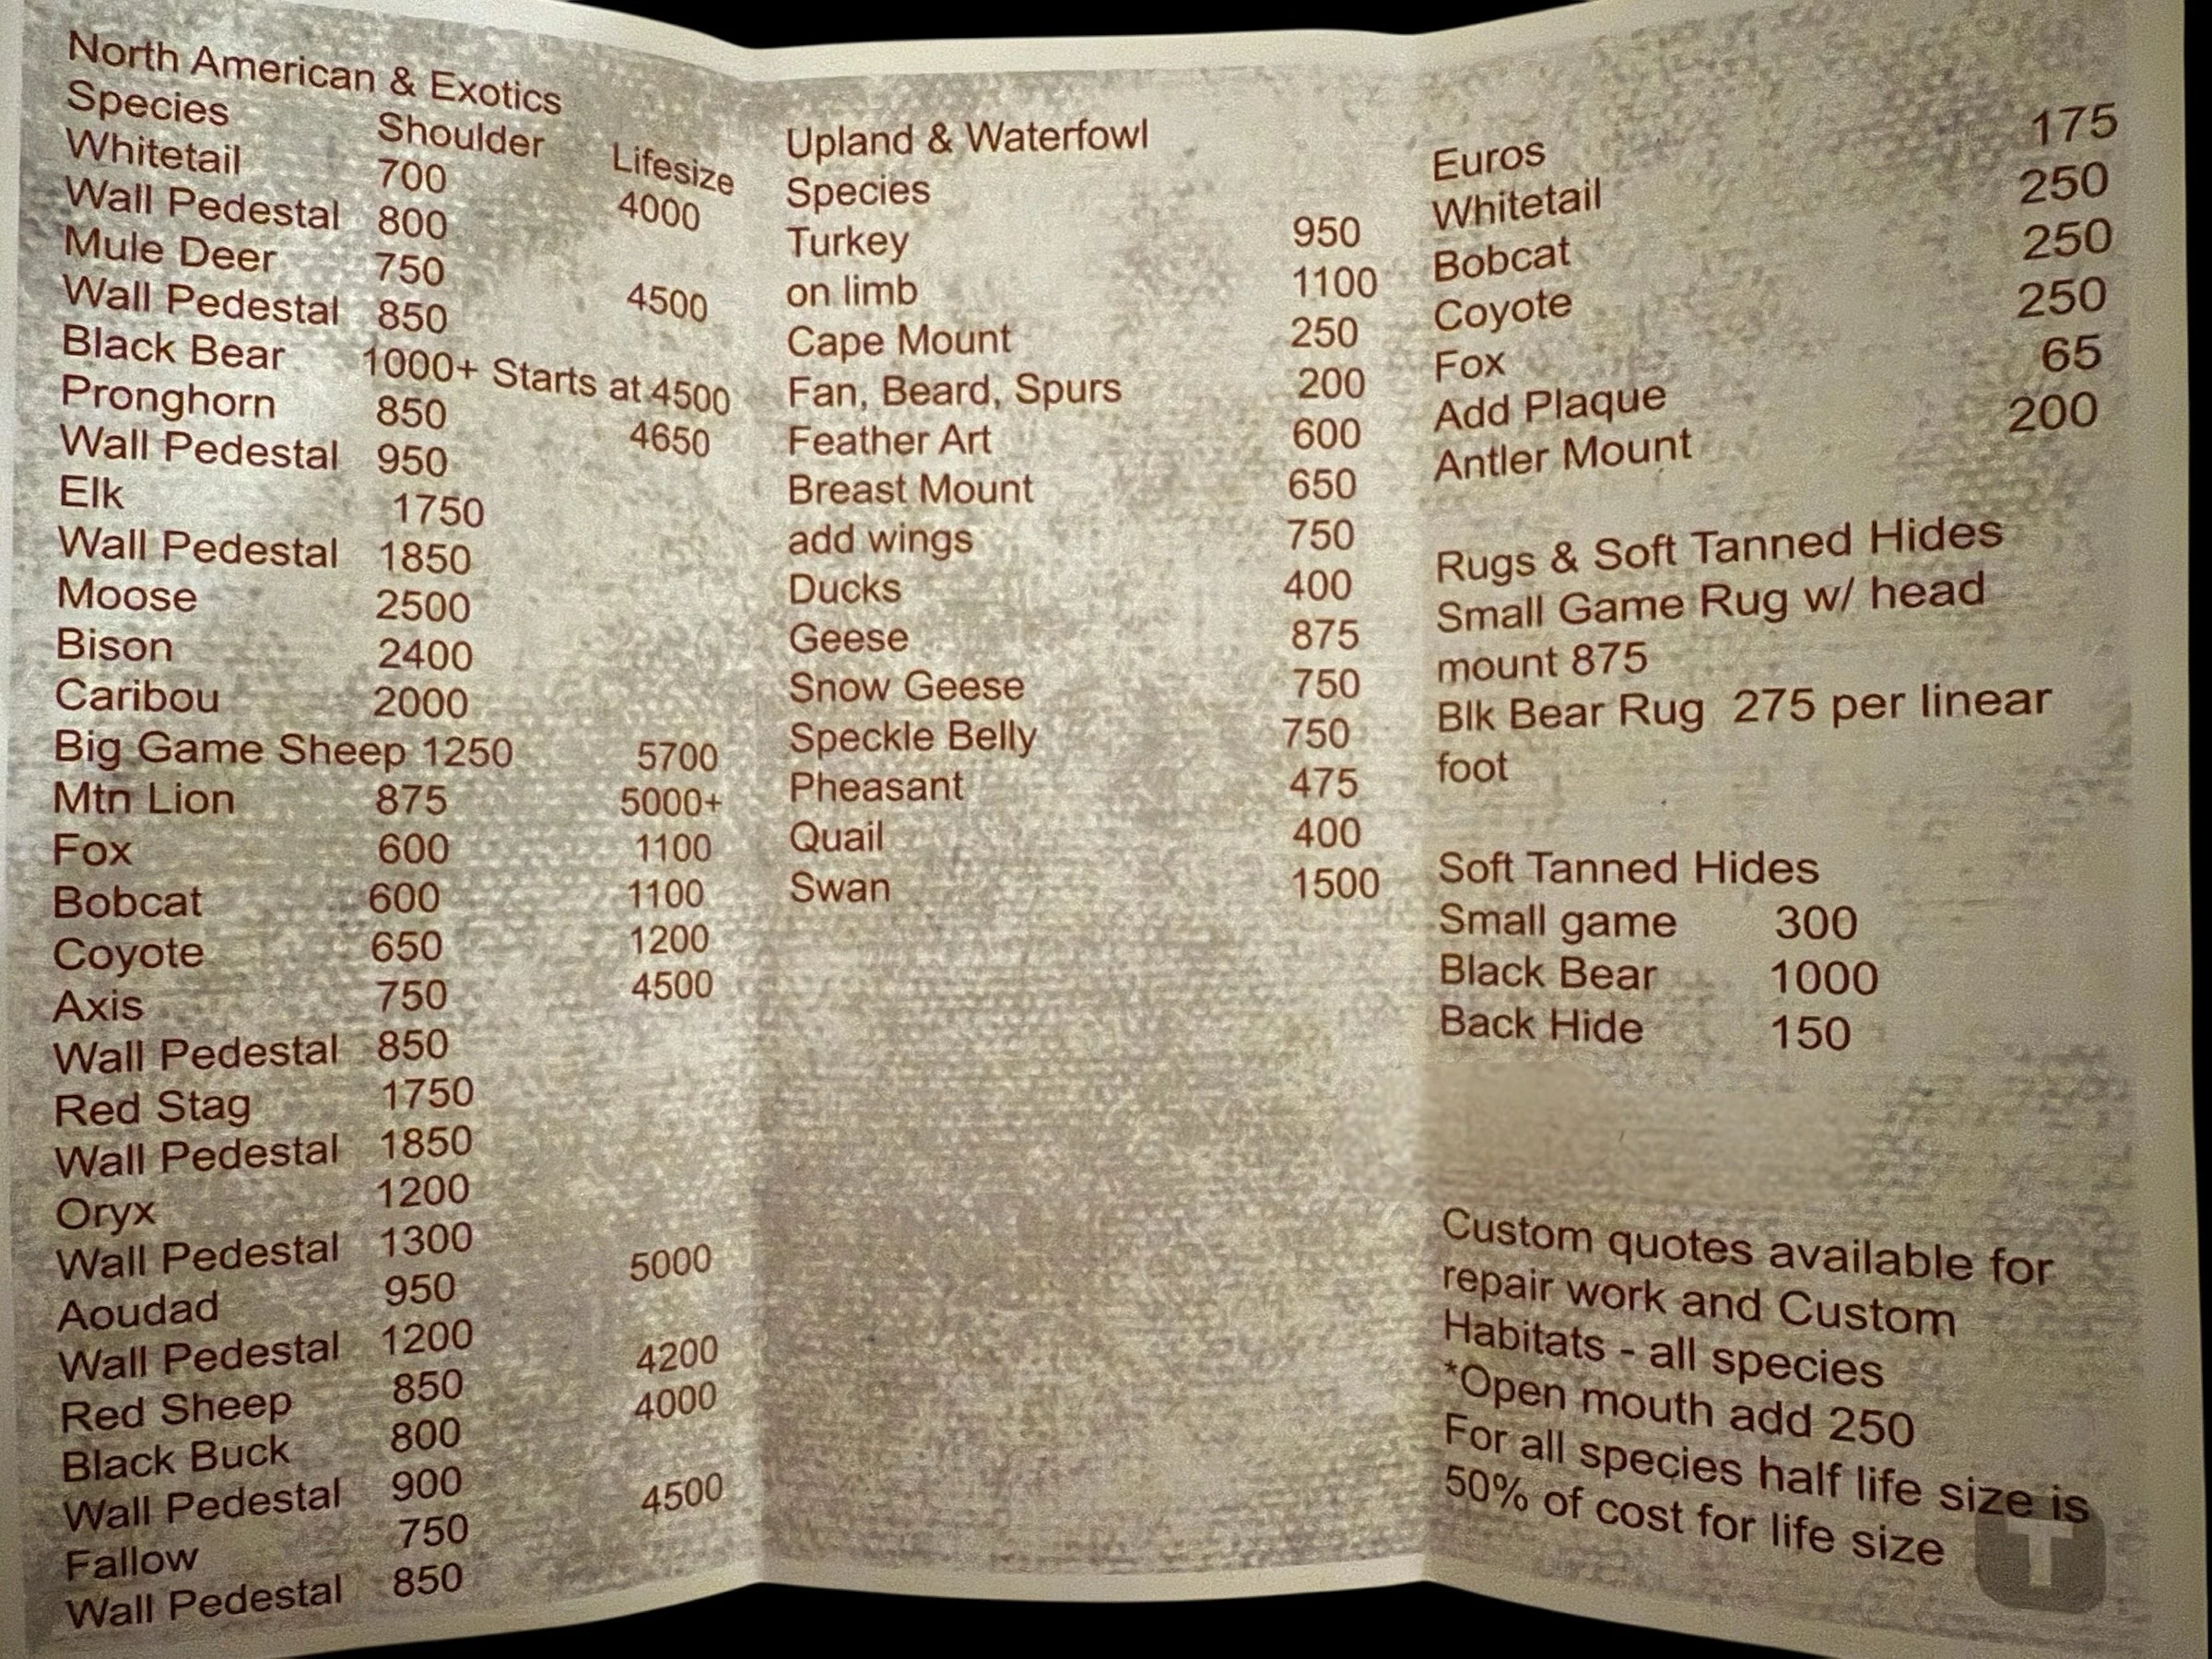 North American & Exotics
Species Shoulder Lifesize
Whitetail 700 4000
Wall Pedestal 800
Mule Deer 750 4500
Wall Pedestal 850
Black Bear 1000+ Starts at 4500
Pronghorn 850 4650
Wall Pedestal 950
Elk 1750
Wall Pedestal 1850
Moose 2500
Bison 2400
Caribou 2000
Big Game Sheep 1250 5700
Mtn Lion 875 5000+
Fox 600 1100
Bobcat 600 1100
Coyote 650 1200
Axis 750 4500
Wall Pedestal 850
Red Stag 1750
Wall Pedestal 1850
Oryx 1200
Wall Pedestal 1300
Aoudad 950 5000
Wall Pedestal 1200
Red Sheep 850 4200
Black Buck 800 4000
Wall Pedestal 900
Fallow 750 4500
Wall Pedestal 850
Upland & Waterfowl
Species
Turkey 950
on limb 1100
Cape Mount 250
Fan, Beard, Spurs 200
Feather Art 600
Breast Mount 650
add wings 750
Ducks 400
Geese 875
Snow Geese 750
Speckle Belly 750
Pheasant 475
Quail 400
Swan 1500
Euros
Whitetail 175
Bobcat 250
Coyote 250
Fox 250
Add Plaque 65
Antler Mount 200
Rugs & Soft Tanned Hides
Small Game Rug w/ head
mount 875
Blk Bear Rug 275 per linear
foot
Soft Tanned Hides
Small game 300
Black Bear 1000
Back Hide 150
Custom quotes available for
repair work and Custom
Habitats - all species
*Open mouth add 250
For all species half life size is
50% of cost for life size
T